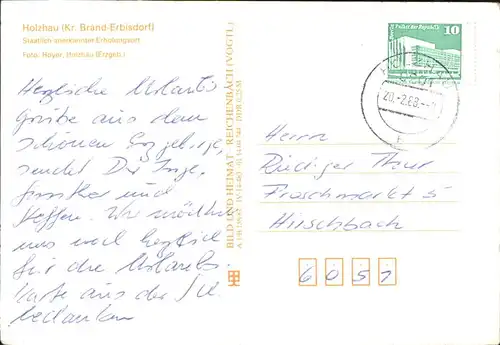 Holzhau (Kr. Brand-Erbisdorf)
Staatlich anerkannter Erholungsort
Foto: Hoyer, Holzhau (Erzgeb.)
Herzliche Urlaubs
grüße aus dem
schönen Erzgebirge,
sendet Dir Inge,
und
Steffen. Wir möchten
uns noch herzlich
für die Urlaubs-
karte aus der
bedanken
BILD UND HEIMAT REICHENBACH (VOGTL)
Palast der Republik
10
DDR
Herrn
Rüdiger Thur
Froschmarkt 5
Hirschbach
6051